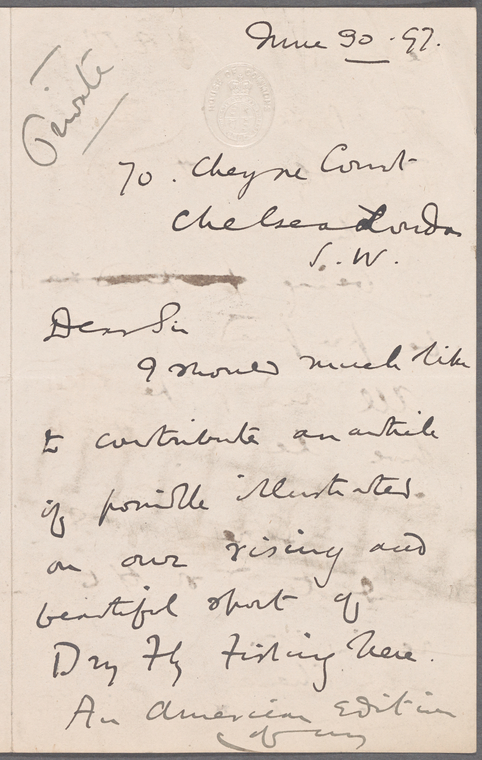 June 30 - 97.
Private
70. Cheyne Court
Chelsea London
S. W.
Dear Sir
I should much like
to contribute an article
if possible illustrated
on our rising and
beautiful sport of
Dry Fly Fishing here.
An American Edition
of my